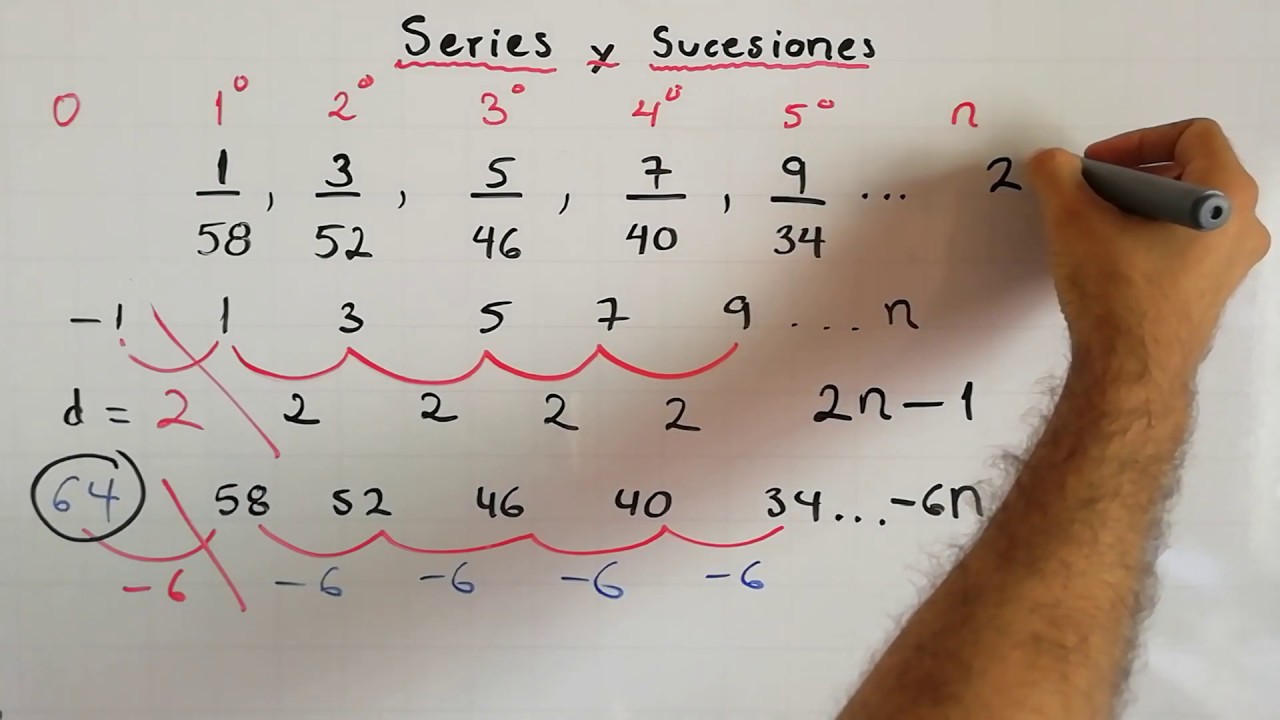 Series y Sucesiones
0 1° 2° 3° 4° 5° n
1/58 , 3/52 , 5/46 , 7/40 , 9/34 ... 2
-1 1 3 5 7 9 ... n
d = 2 2 2 2 2 2n-1
64 58 52 46 40 34...-6n
-6 -6 -6 -6 -6